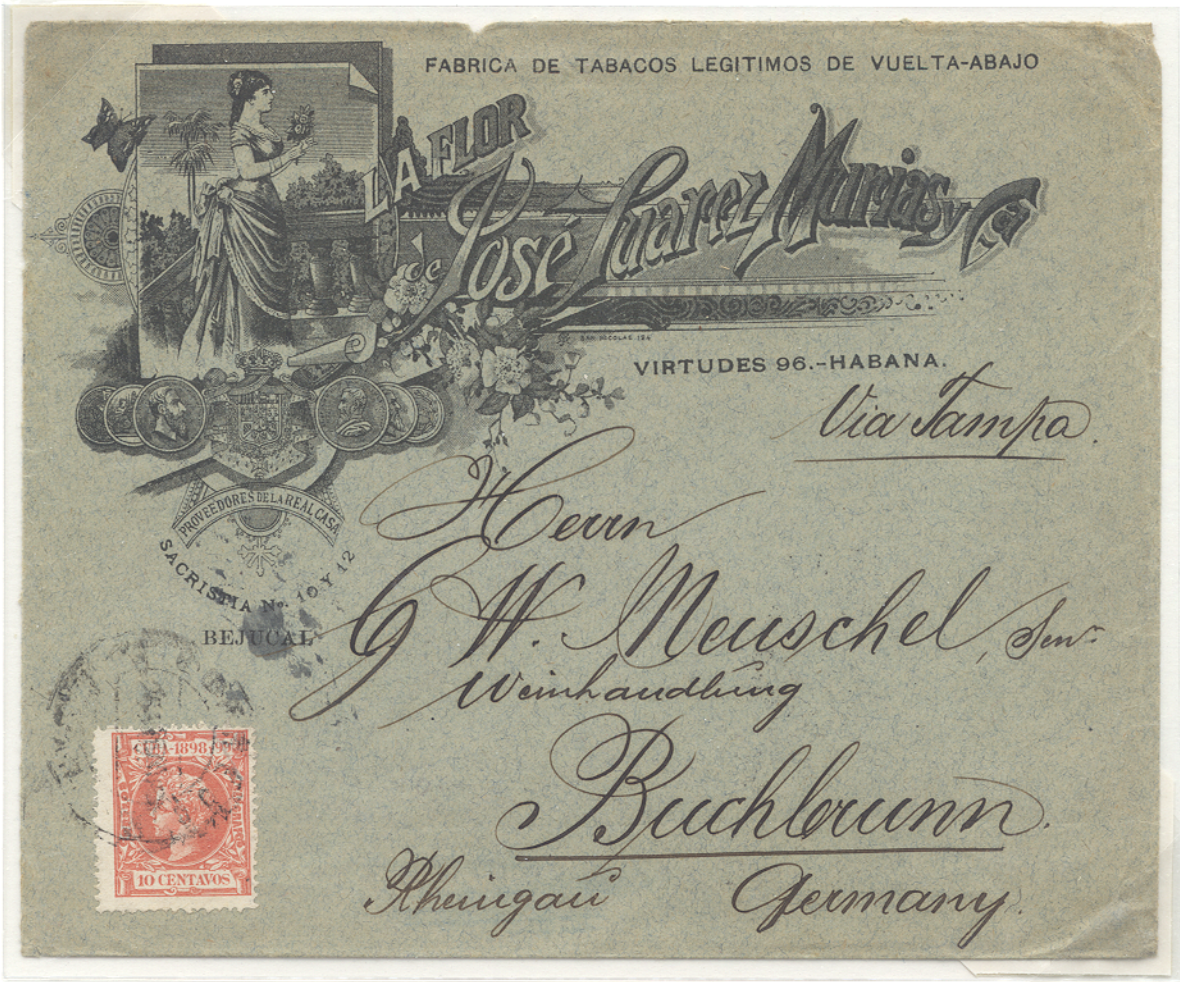 FABRICA DE TABACOS LEGITIMOS DE VUELTA-ABAJO
LA FLOR
de José Suarez Murias y Ca
SAN NICOLAS 194
VIRTUDES 96.-HABANA.
Via Tampa.
PROVEEDORES DE LA REAL CASA
SACRISTIA No. 10 Y 12
BEJUCAL
Herrn
G W. Meuschel, Senr.
Weinhandlung
Buchbrunn.
Rheingau Germany.
CUBA-1898 Y 99
10 CENTAVOS